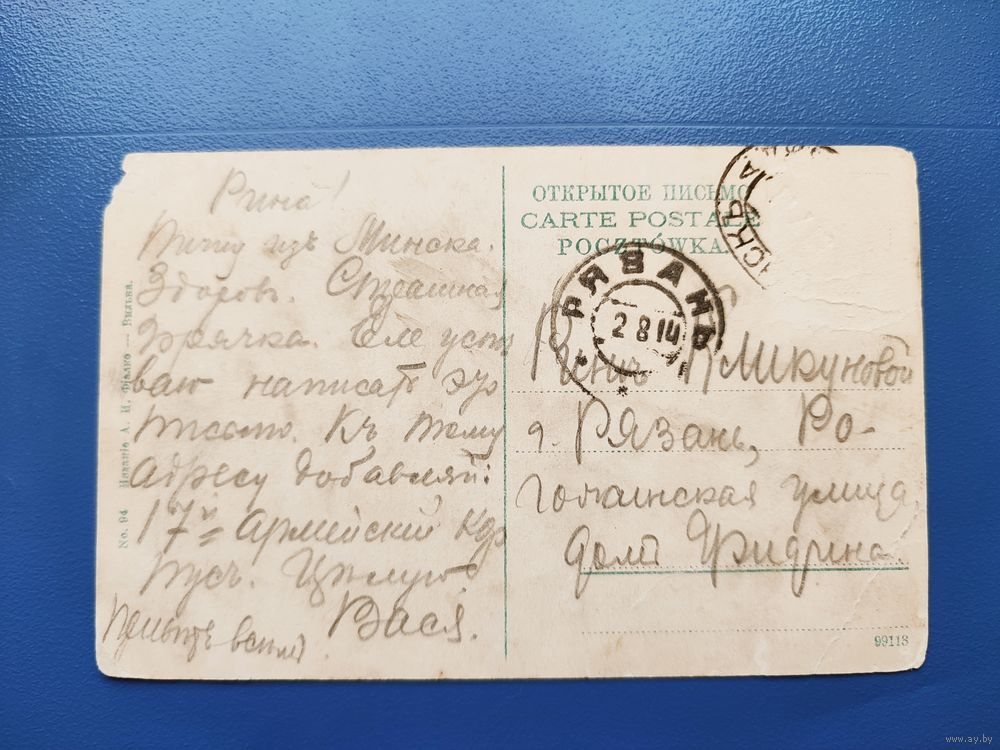 Рина!
Пишу изъ Минска.
Здоровъ. Страшная
горячка. Еле успѣ
ваю написать эту
письмо. Къ тому
адресу добавляй:
17й Армейскій Кор
пусъ. Цѣлую
Вася.
всѣмъ
No. 94 Изданіе А. И. — Вильна.
ОТКРЫТОЕ ПИСЬМО
CARTE POSTALE
POCZTÓWKA.
РЯЗАНЬ
2 8 14
г. Рязань, Ро-
улица,
домъ Фридрина.
99113
www.ay.by